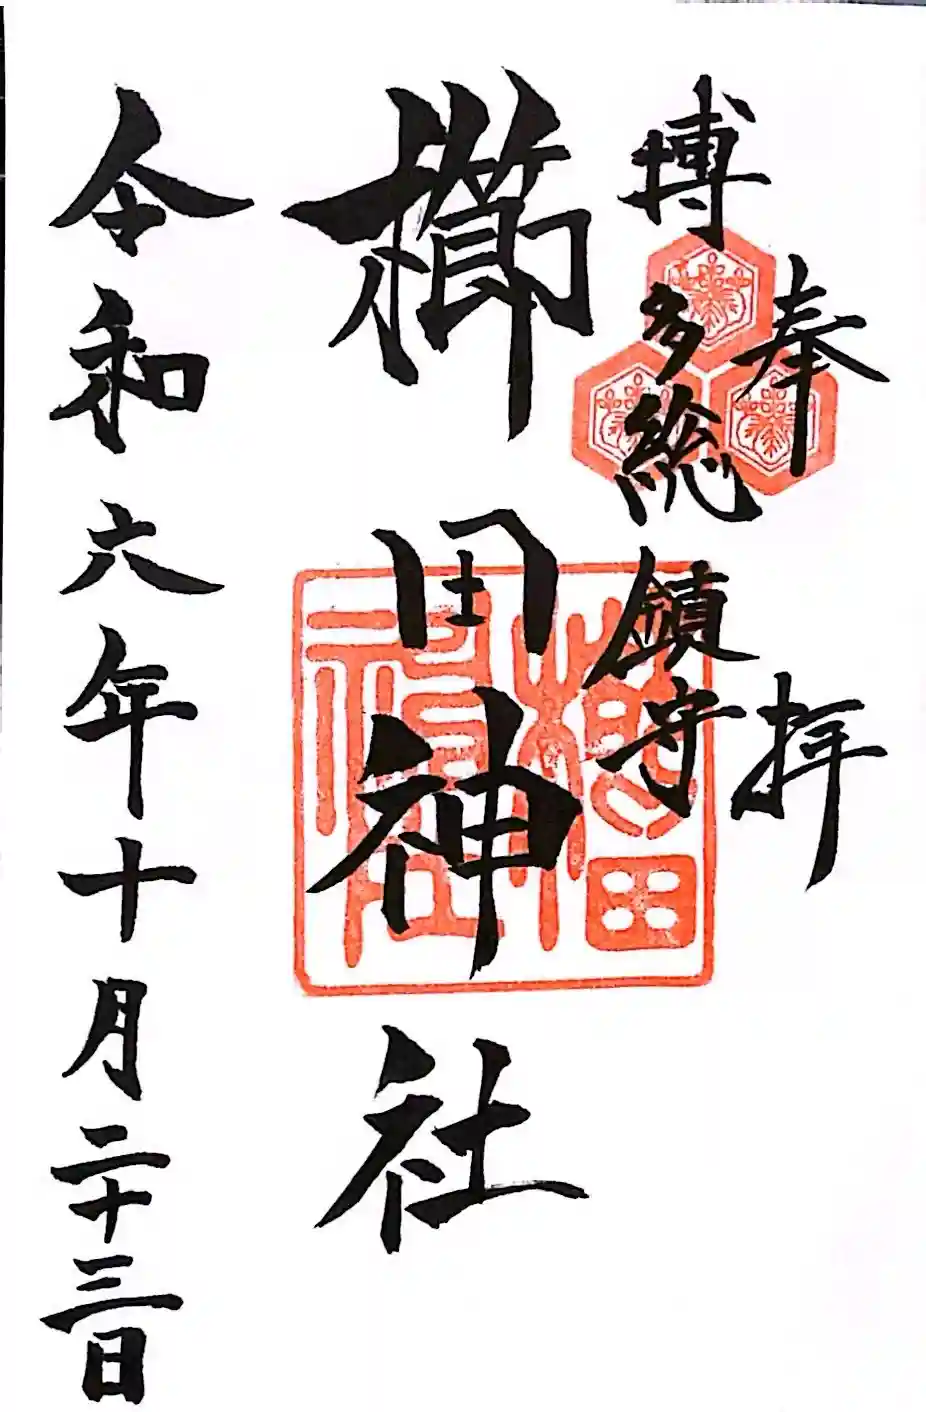 奉拝
博多総鎮守
櫛田神社
令和六年十月二十三日
櫛田神社